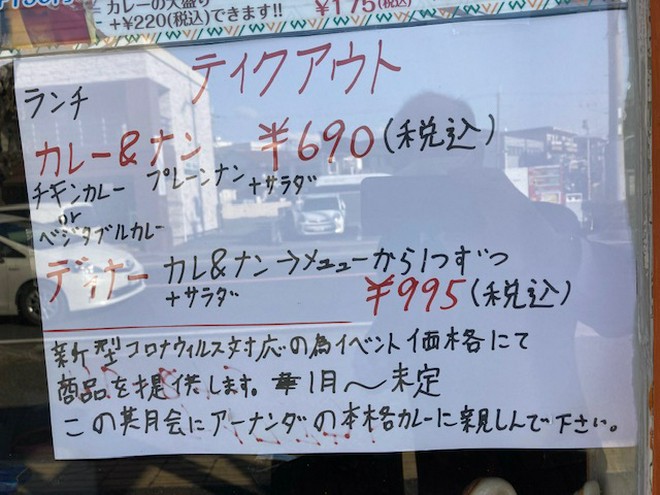 カレーの大盛り
+¥220(税込)できます!!
¥175(税込)
テイクアウト
ランチ
カレー&ナン ¥690(税込)
チキンカレー プレーンナン+サラダ
or
ベジタブルカレー
ディナー カレ&ナン→メニューから1つずつ
+サラダ ¥995(税込)
新型コロナウィルス対応の為イベント価格にて
商品を提供します。1月~未定
この英月会にアーナンダの本格カレーに親しんで下さい。